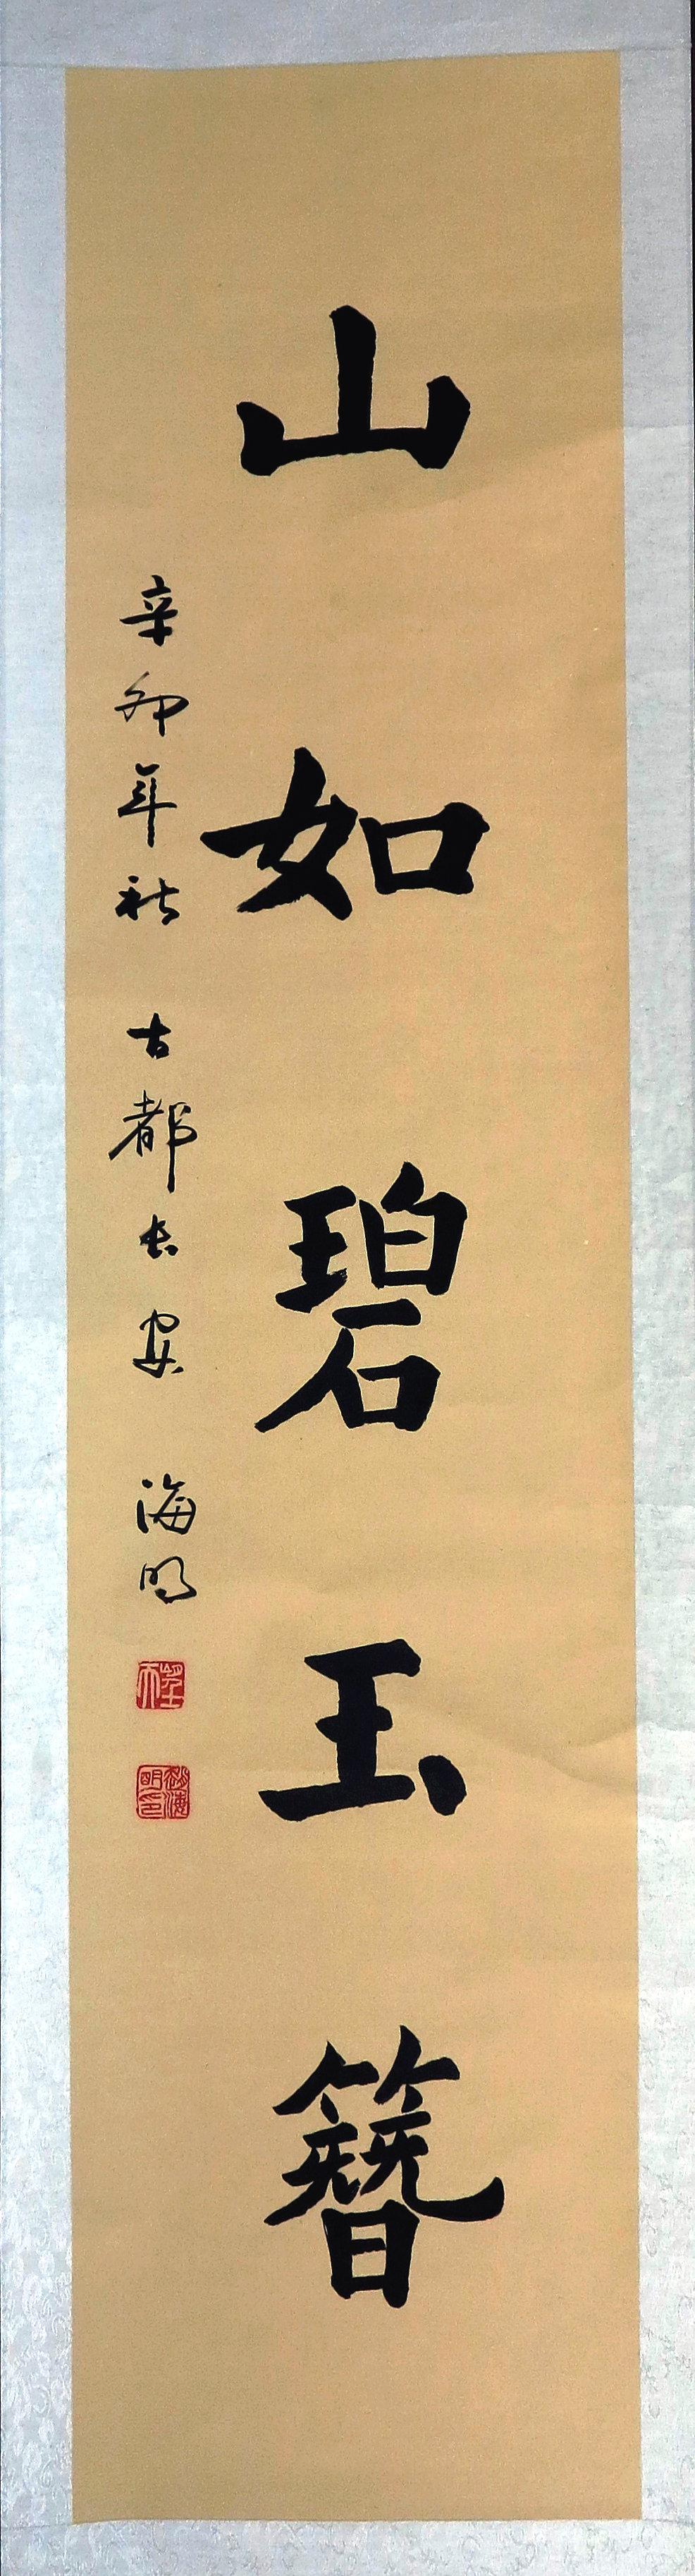 山如碧玉簪
辛卯年秋 古都長安 海明